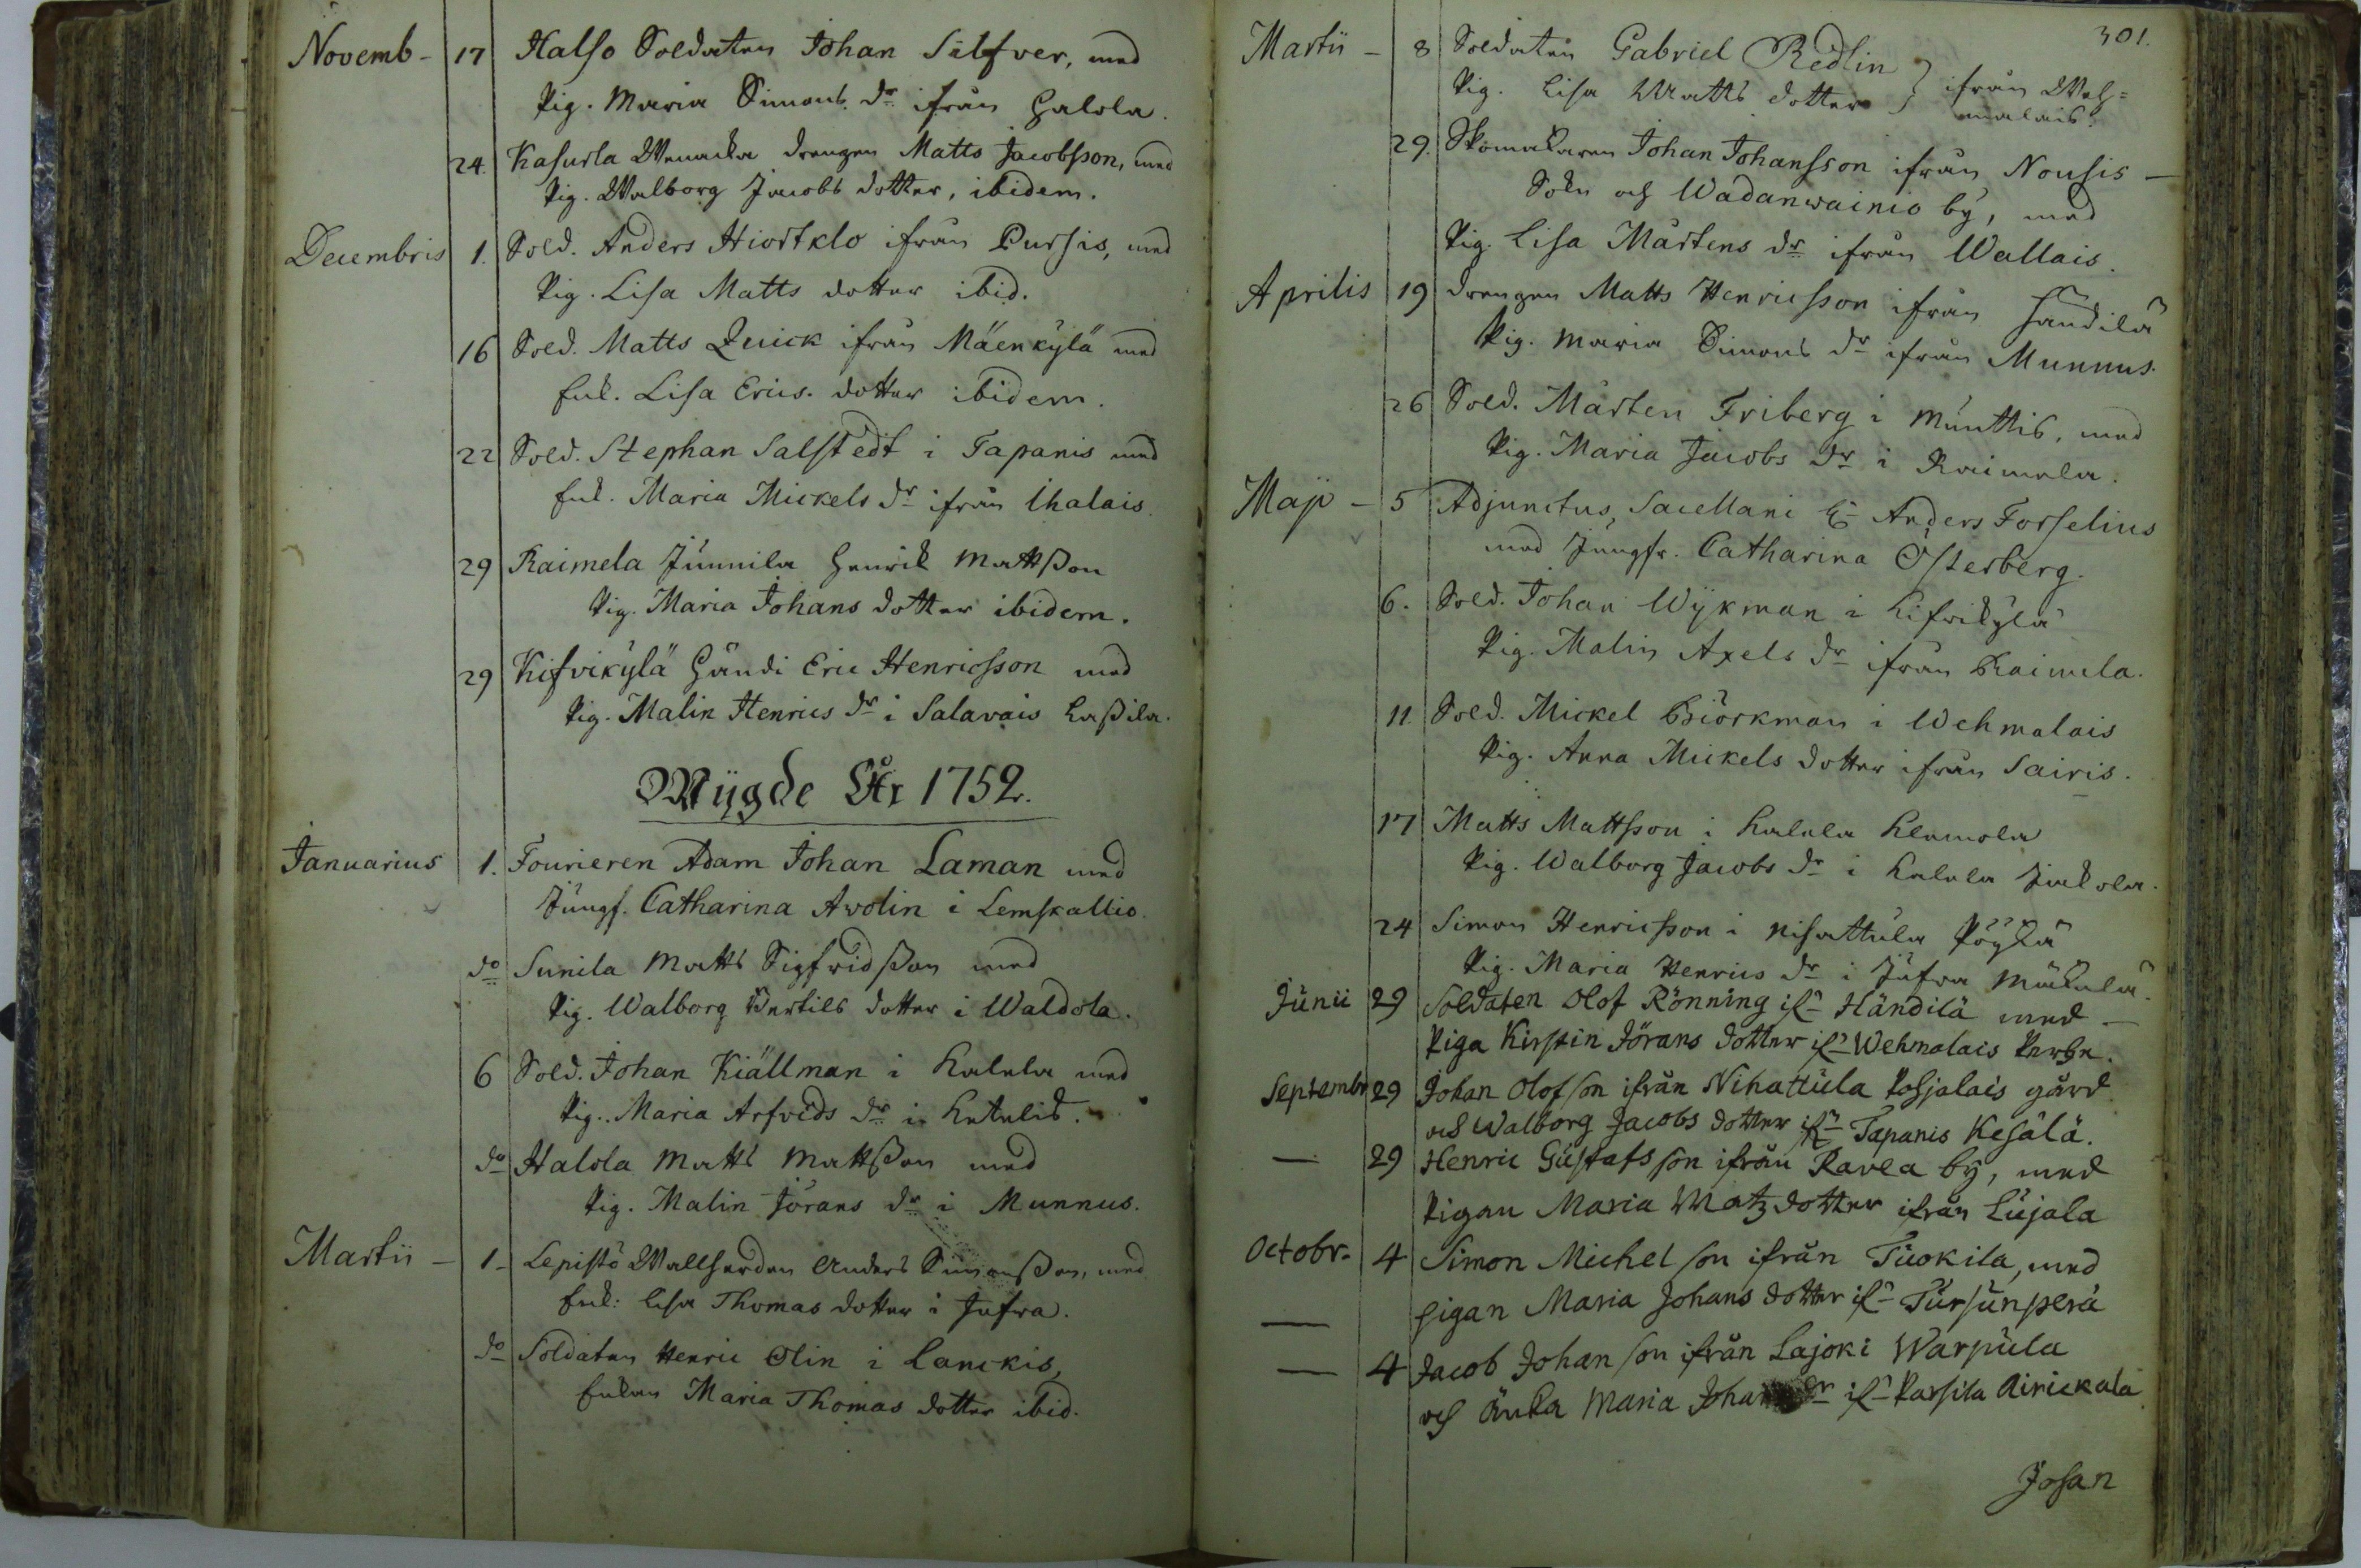 Novemb - 17 Halso Soldaten Johan Silfver, med
Pig. Maria Simons dr ifrån Halola.
24. Kasurla Wenacka drengen Matts Jacobsson, med
Pig. Walborg Jacobs dotter, ibidem.
Decembris 1. Sold. Anders Hiortklo ifrån Pursis, med
Pig. Lisa Matts dotter ibid.
16 Sold. Matts Quick ifrån Mäenkylä med
Enk. Lisa Erics. dotter ibidem.
22 Sold. Stephan Salstedt i Tapanis med
Enk. Maria Mickels dr ifrån Ihalais.
29 Raimela Junnila Henrik Mattsson
Pig. Maria Johans dotter ibidem.
29 Kifvikylä Händi Eric Henricsson med
Pig. Malin Henrics dr i Salavais Lassila.
Wijgde År 1752.
Januarius 1. Fourieren Adam Johan Laman med
Jungf. Catharina Avolin i Lemskallio
do Sunila Matts Sigfridsson med
Pig. Walborg Bertils dotter i Waldola.
6 Sold. Johan Kiällman i Kalela med
Pig. Maria Arfvids dr i Ketelis.
do Halola Matts Mattsson med
Pig. Malin Jörans dr i Munnus.
Martii - 1 - Lepistö Wallherden Anders Simonsson, med
Enk: Lisa Thomas dotter i Jufva.
do Soldaten Henric Olin i Lanckis,
Enkan Maria Thomas dotter ibid.
301.
Martii - 8 Soldaten Gabriel Redlin
Pig. Lisa Matts dotter } ifrån Weh=
malais.
29. Skomakaren Johan Johansson ifrån Nousis -
Sokn och Wadanwainio by, med
Pig. Lisa Mårtens dr ifrån Wallais.
Aprilis 19 drengen Matts Henricsson ifrån Händilä
Pig. Maria Simons dr ifrån Munnus.
26 Sold. Mårten Friberg i Munttis, med
Pig. Maria Jacobs dr i Raimela.
Maji - 5 Adjunctus Sacellani Hr Anders Forselius
med Jungfr. Catharina Österberg.
6. Sold. Johan Wijkman i Kifvikylä
Pig. Malin Axels dr ifrån Raimela.
11. Sold. Mickel Biörkman i Wehmalais
Pig. Anna Mickels dotter ifrån Sairis.
17 Matts Mattsson i Kalela Klemola
Pig. Walborg Jacobs dr i Kalela Jackola.
24 Simon Henricsson i Nihattula Pöykä
Pig. Maria Henrics dr i Jufva Mäkelä.
Junii 29 Soldaten Olof Rönning ifr Händilä med -
Piga Kirstin Jörans dotter ifr Wehmalais Perhe.
Septembr 29 Johan Olofson ifrån Nihattula Pohjalais gård
och Walborg Jacobs dotter ifr Tapanis Kesälä.
- 29 Henric Gustafsson ifrån Ravea by, med
Pigan Maria Matz dotter ifrån Lujala
Octobr. 4 Simon Michelson ifrån Tuokila, med
- pigan Maria Johans dotter ifr Tursunperä
- 4 Jacob Johanson ifrån Lajoki Warpula
och Änka Maria Johans dr ifr Karsila Airickala
Johan